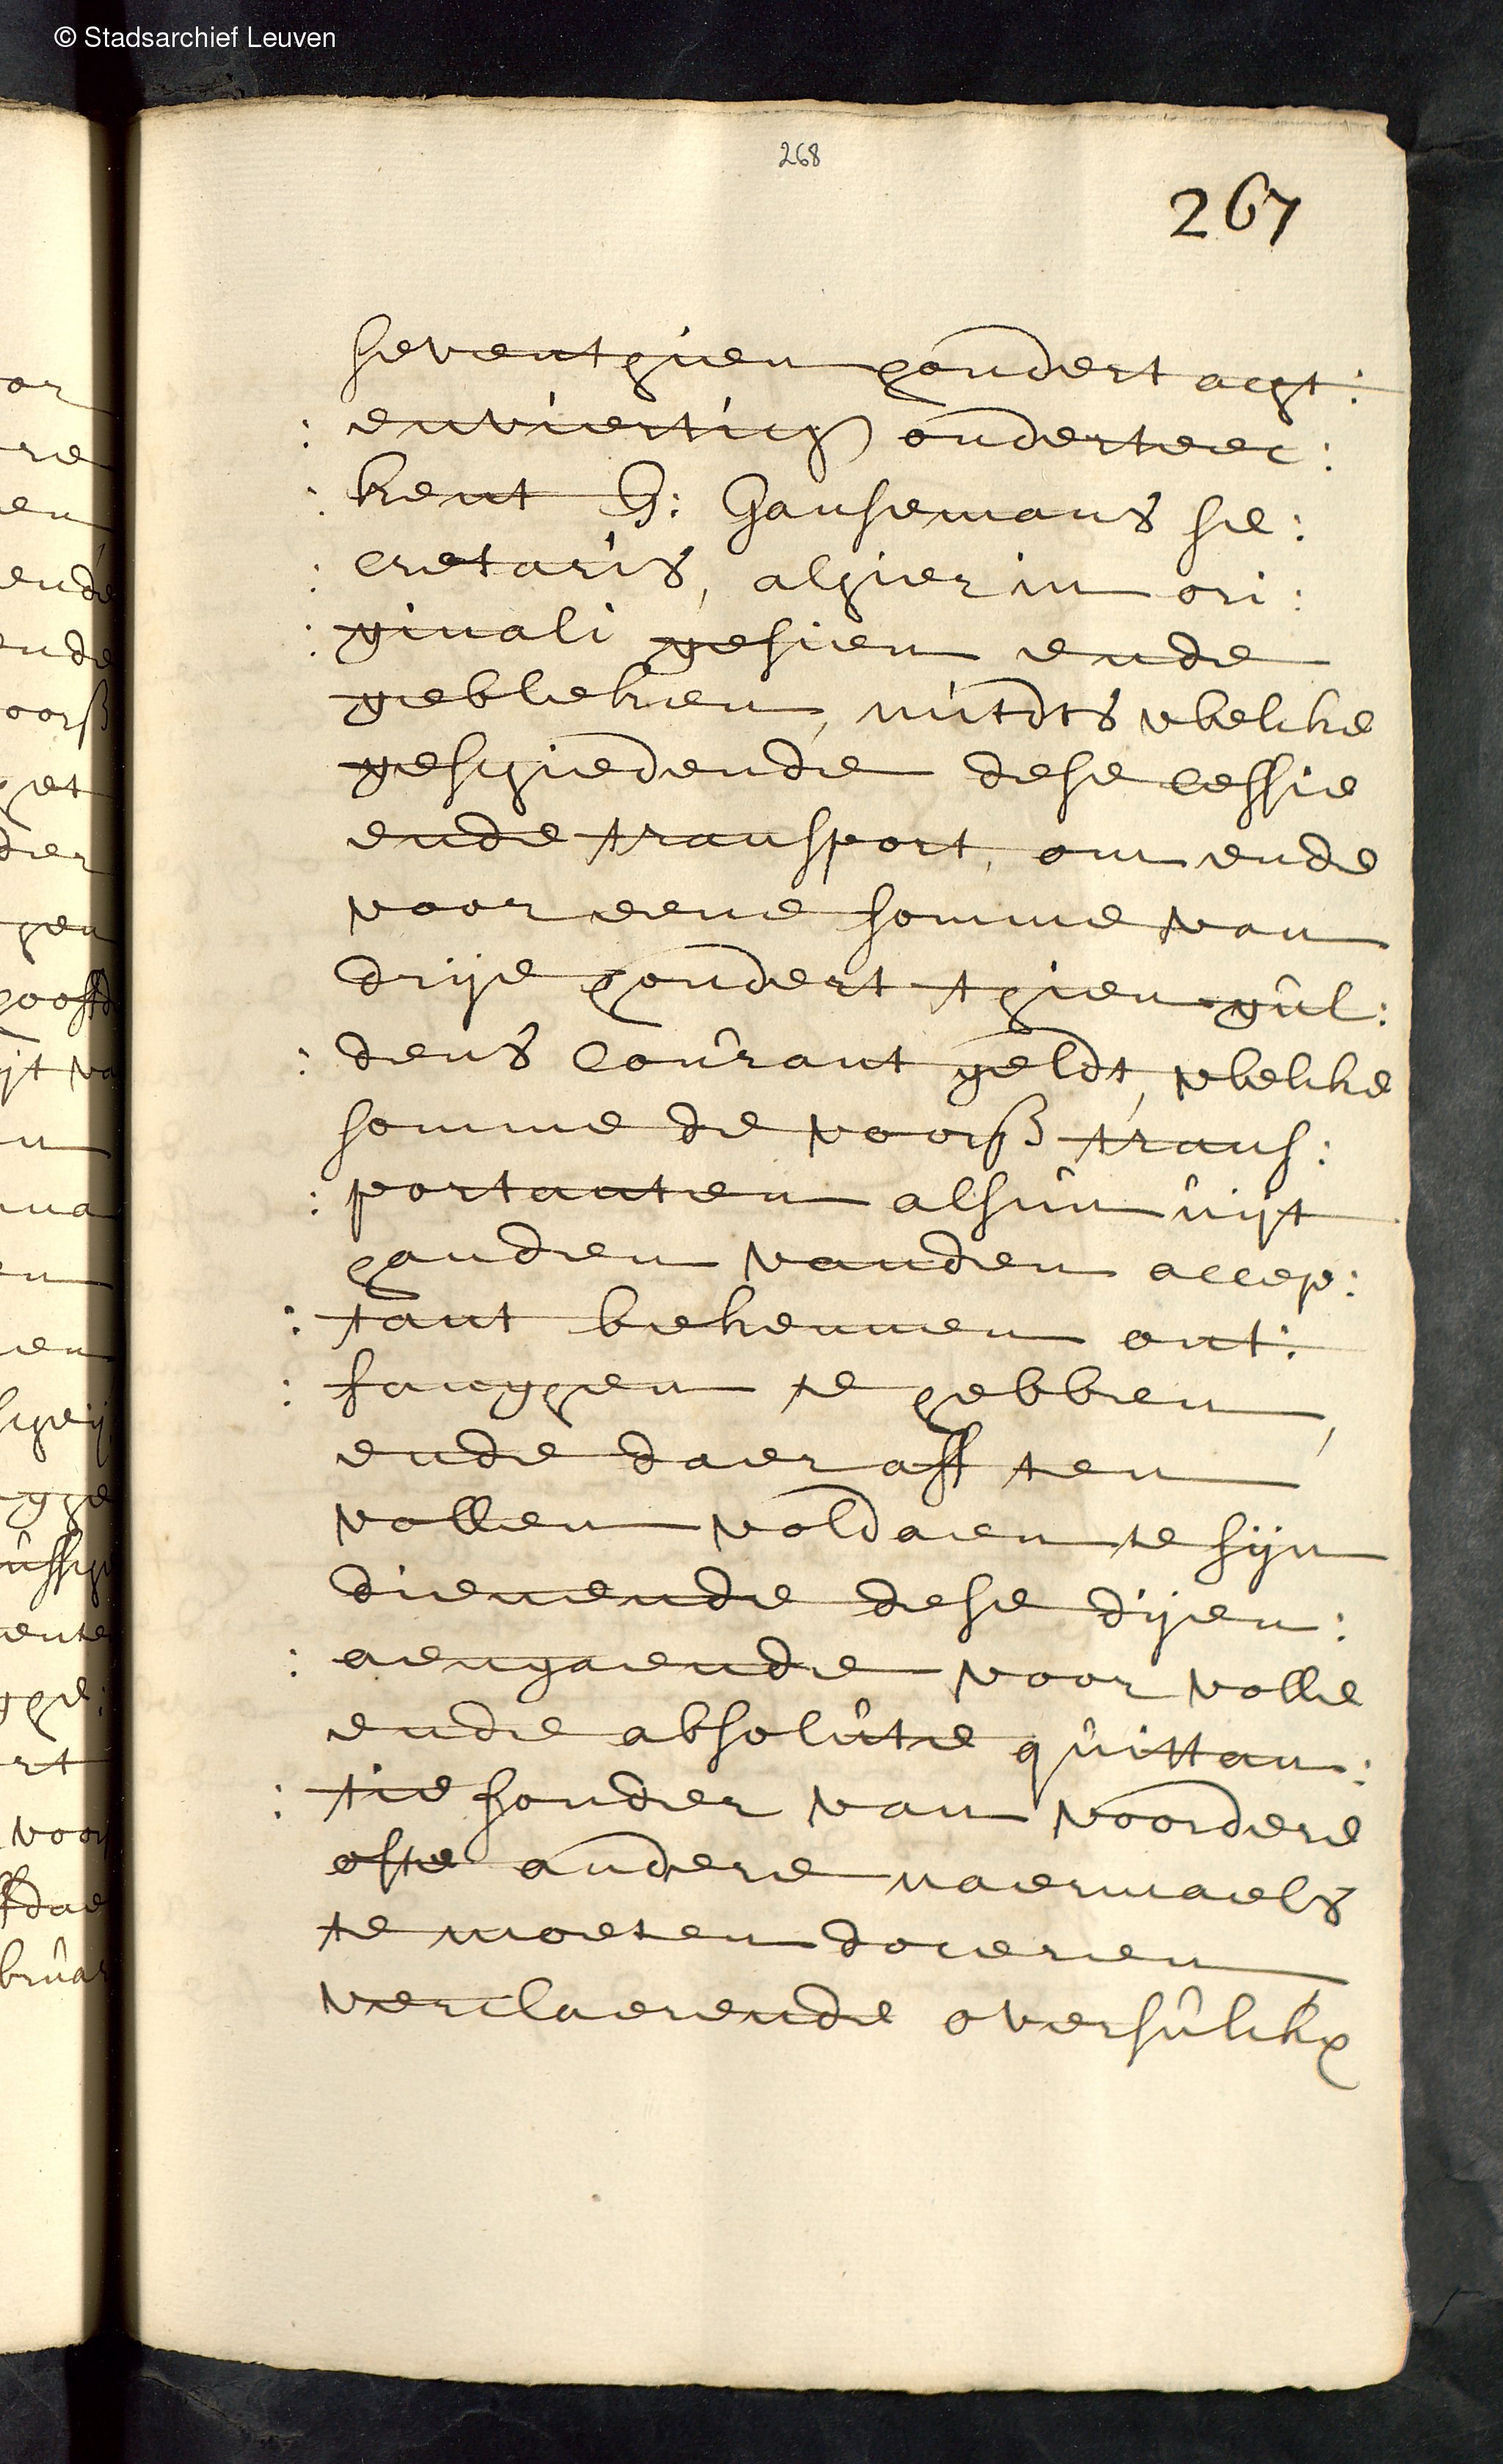 © Stadsarchief Leuven
268
267
seventhien hondert acht:
: enviertich onderteec:
: kent G: Gansemans se:
: cretaris, alhier in ori:
: ginali gesien ende
gebleken, mitdts welcke
geschiedende dese cessie
ende transport, om ende
voor eene somme van
drije hondert thien gul:
: dens courant geldt, welcke
somme de voorß trans:
: portanten alhun uijt
handen vanden accep:
: tant bekennen ont:
: fanghen te hebben,
ende daer aff ten
vollen voldaen te sijn
dienende dese dijen:
: aengaende voor volle
ende absolute quittan:
: tie sonder van voordere
ofte andere naermaels
te moeten doceren
verclaerende oversulckx